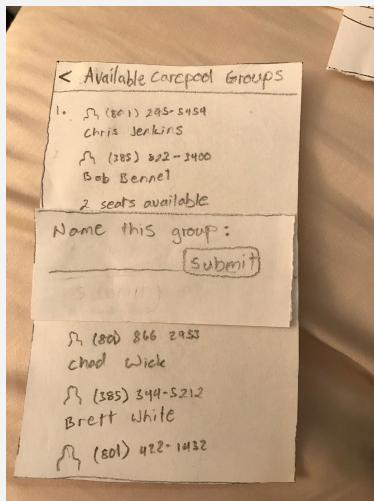 < Available Carpool Groups
1. (801) 295-5454
Chris Jenkins
(385) 822-3400
Bob Bennet
2 seats available
Name this group:
Submit
(801) 866 2953
Chad Wick
(385) 394-5212
Brett White
(801) 422-1432